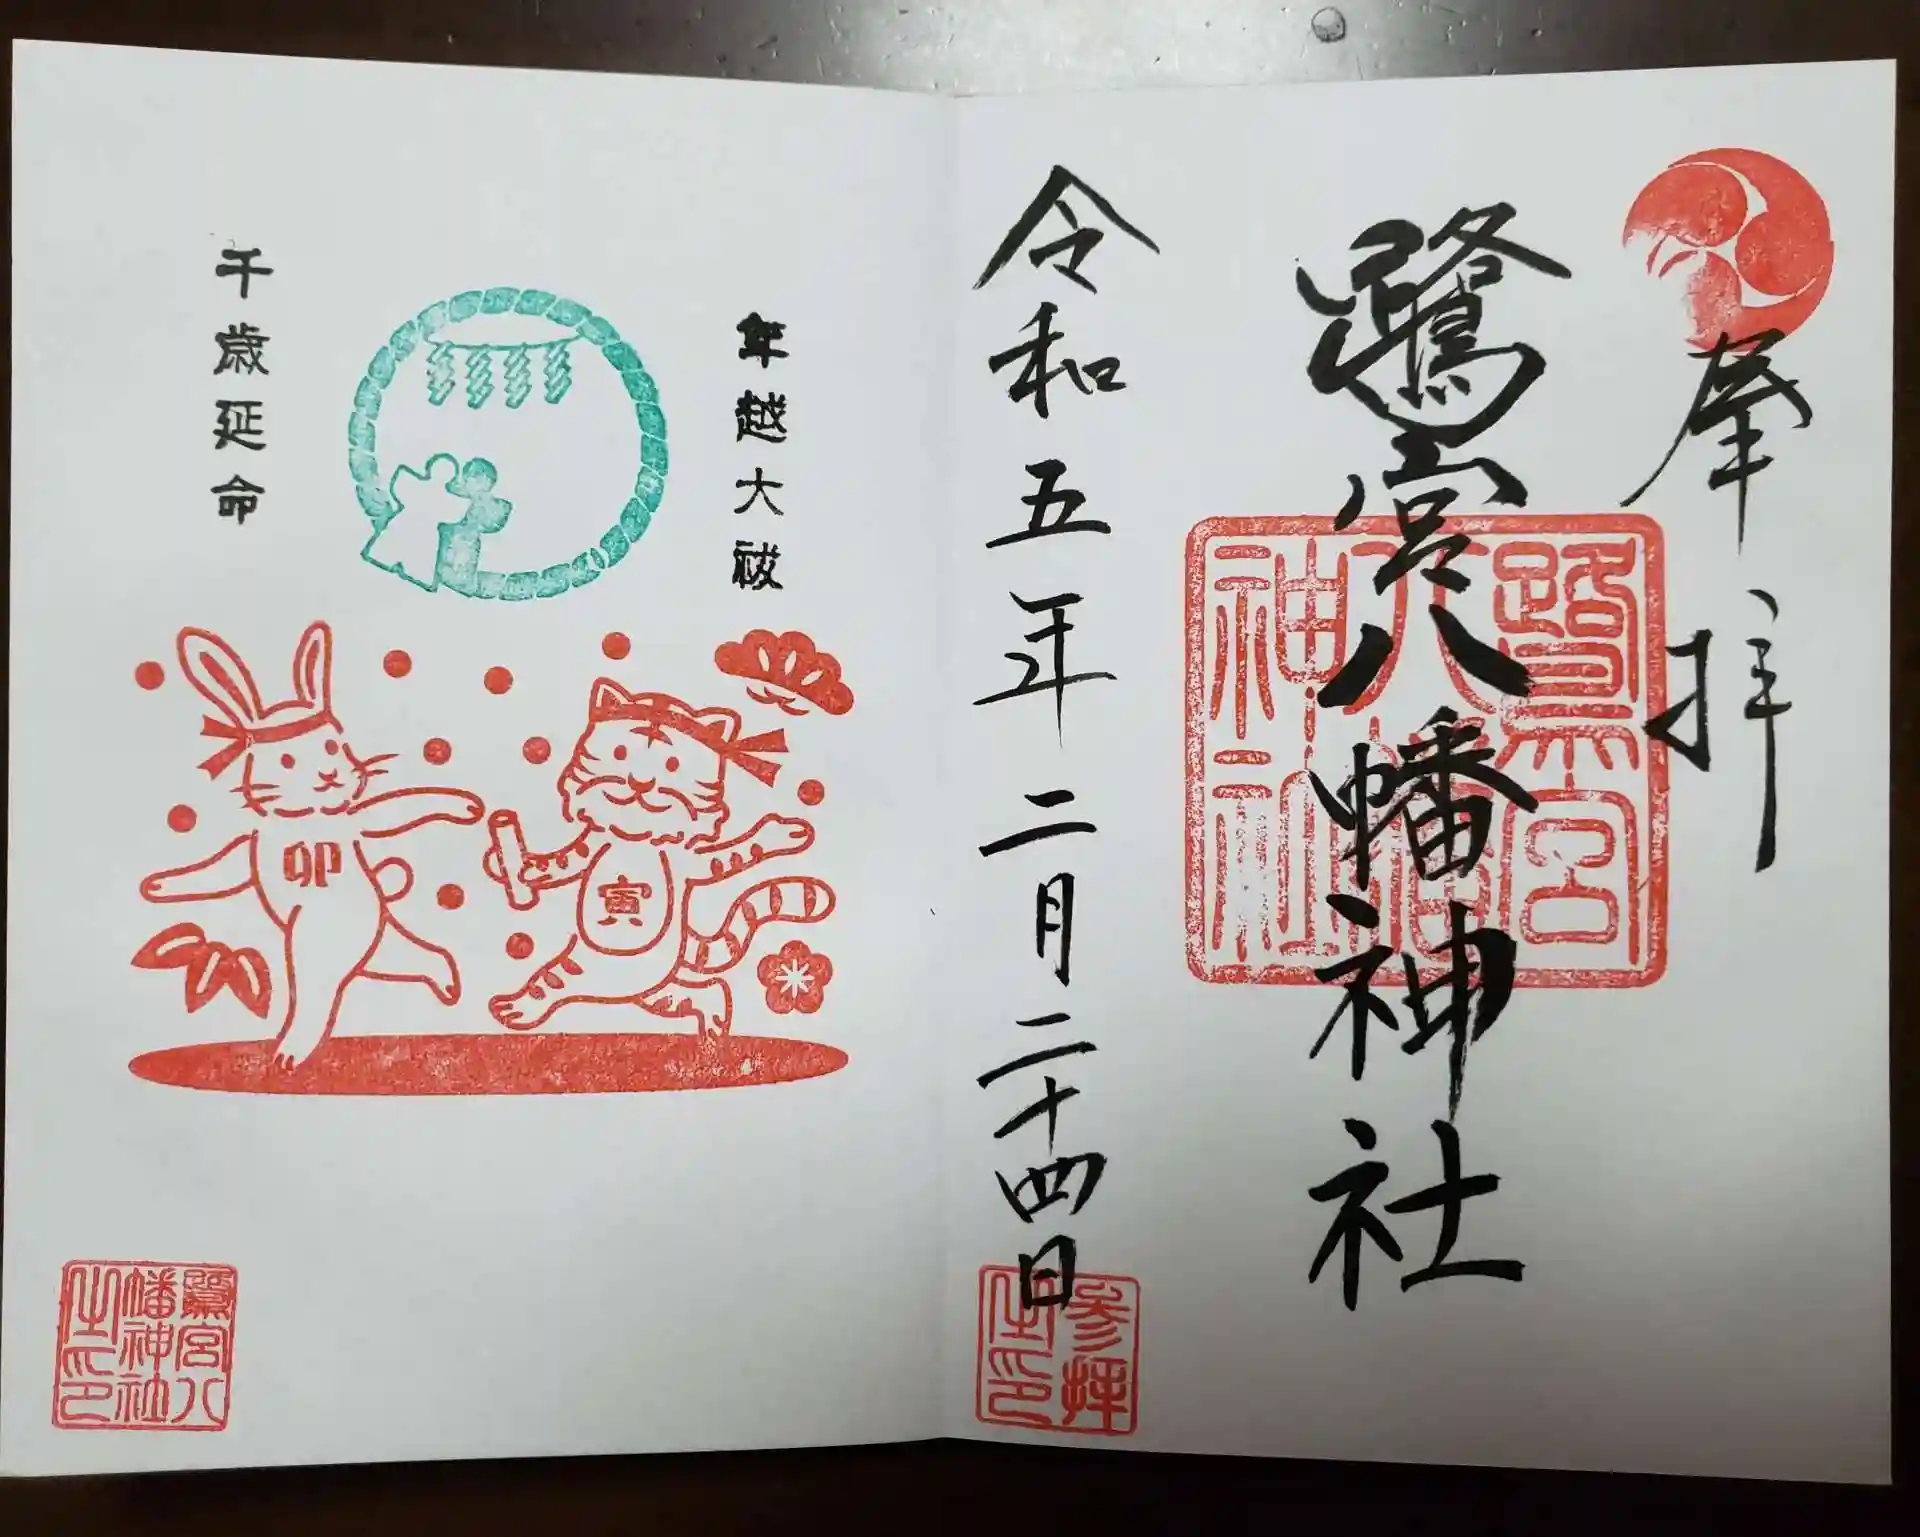 奉拝
鷺宮八幡神社
鷺宮
八幡
神社
令和五年二月二十四日
参拝
之印
年越大祓
千歳延命
卯
寅
鷺宮八
幡神社
之印